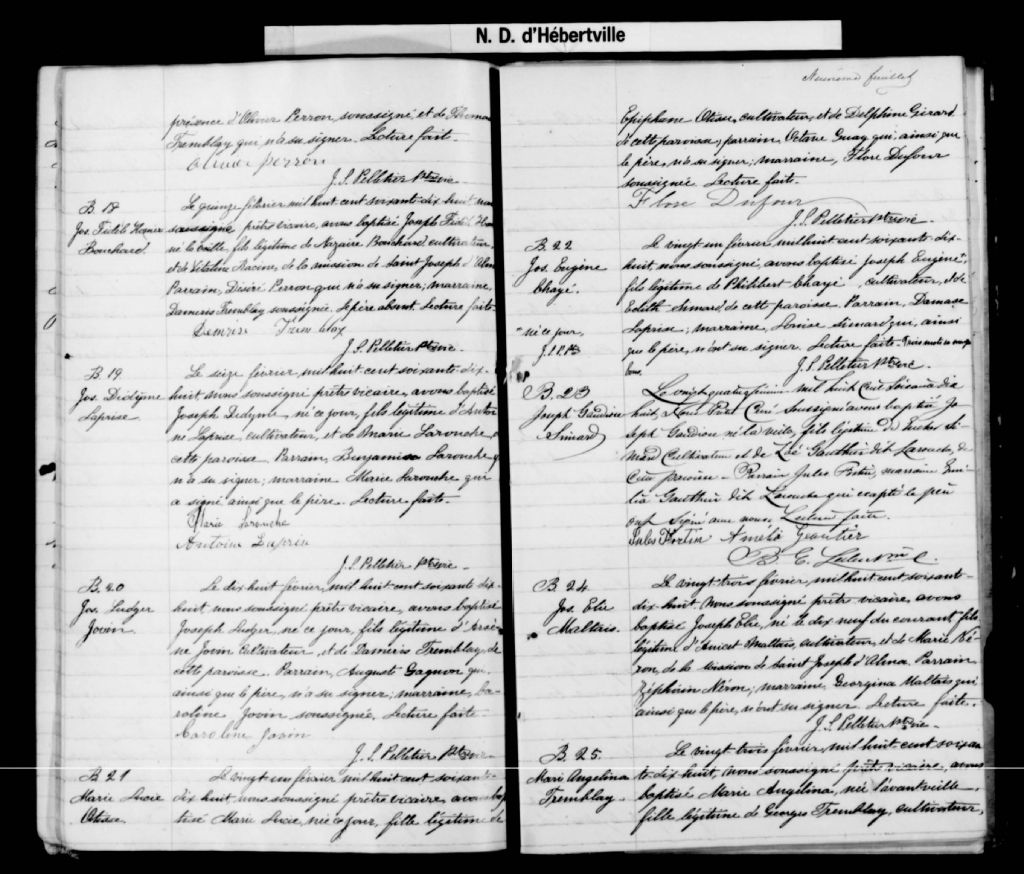 N. D. d'Hébertville
présence d'Olivier Perron, soussigné, et de Thomas
Tremblay qui n'a su signer. Lecture faite.
Olivier perron
J. S. Pelletier Ptre vic.
B. 18
Jos. Fidèle Homer
Bouchard.
Le quinze février mil huit cent soixante-dix-huit nous
soussigné prêtre vicaire, avons baptisé Joseph Fidèle
né le fils légitime de Nazaire Bouchard, cultivateur,
et de Vitaline Racine, de la mission de Saint Joseph d'Alma
Parrain, Désiré Perron qui n'a su signer; marraine,
Dameris Tremblay soussignée. Le père absent. Lecture faite.
Tremblay
J. S. Pelletier Ptre vic.
B. 19.
Jos. Didyme
Laprise.
Le seize février, mil huit cent soixante-dix-
huit nous soussigné prêtre vicaire, avons baptisé
Joseph Didyme né ce jour, fils légitime d'Antoi-
ne Laprise, cultivateur, et de Marie Larouche, de
cette paroisse. Parrain, Benjamin Larouche qui
n'a su signer; marraine Marie Larouche qui
a signé ainsi que le père. Lecture faite.
Marie Larouche
Antoine Laprise
J. S. Pelletier Ptre vic.
B. 20
Jos. Ludger
Jovin.
Le dix huit février, mil huit cent soixante dix-
huit, nous soussigné prêtre vicaire, avons baptisé
Joseph Ludger, né ce jour, fils légitime d'Arsè-
ne Jovin cultivateur et de Dameris Tremblay, de
cette paroisse. Parrain, Auguste Gagnon qui,
ainsi que le père, n'a su signer; marraine, Ca-
roline Jovin soussignée. Lecture faite.
Caroline Jovin
J. S. Pelletier Ptre vic.
B. 21
Marie Lucie
Otisse.
Le vingt un février mil huit cent soixante-
dix huit, nous soussigné prêtre vicaire, avons bap-
tisé Marie Lucie, née ce jour, fille légitime de
Neuvième feuillet
Epiphane Otisse, cultivateur, et de Delphine Girard
de cette paroisse; parrain, Octave Guay qui, ainsi que
le père, n'a su signer; marraine, Flore Dufour
soussignée. Lecture faite.
Flore Dufour
J. S. Pelletier Ptre vic.
B. 22
Jos. Eugène
Chazé.
Le vingt un février, mil huit cent soixante dix-
huit, nous soussigné, avons baptisé Joseph Eugène,
fils légitime de Philibert Chazé, cultivateur, et d'É
Edith Simard de cette paroisse. Parrain, Damase
Laprise; marraine, Louise Simard qui, ainsi
que le père, n'ont su signer. Lecture faite. Trois mots en marge
bons.
né ce jour,
J. S. P. Ptre
J. S. Pelletier Ptre vic.
B. 23
Joseph Gaudiose
Simard
Le vingt quatre février mil huit cent soixante dix
huit, Nous Prêtre Curé soussigné avons baptisé Jo
seph Gaudiose né la veille, fils légitime de Si-
mard Cultivateur et de Zoé Gauthier dit Larouche, de
cette paroisse. Parrain Jules Fortin, marraine Amé-
lia Gauthier dit Larouche qui excepté le père
ont signé avec nous. Lecture faite.
Jules Fortin Amelia Geautier
B. E. Leclerc Ptre
B. 24
Jos. Elie
Maltais.
Le vingt trois février, mil huit cent soixante-
dix-huit. Nous soussigné prêtre vicaire, avons
baptisé Joseph Elie, né le dix neuf du courant, fils
légitime d'Anicet Maltais, cultivateur, et de Marie Né-
ron de la mission de Saint Joseph d'Alma. Parrain,
Zéphirin Néron; marraine, Georgina Maltais qui
ainsi que le père, n'ont su signer. Lecture faite.
J. S. Pelletier Ptre vic.
B. 25.
Marie Angelina
Tremblay.
Le vingt trois février, mil huit cent soixan
te-dix-huit, nous soussigné prêtre vicaire, avons
baptisé Marie Angélina, née l'avantveille
fille légitime de Georges Tremblay, cultivateur,